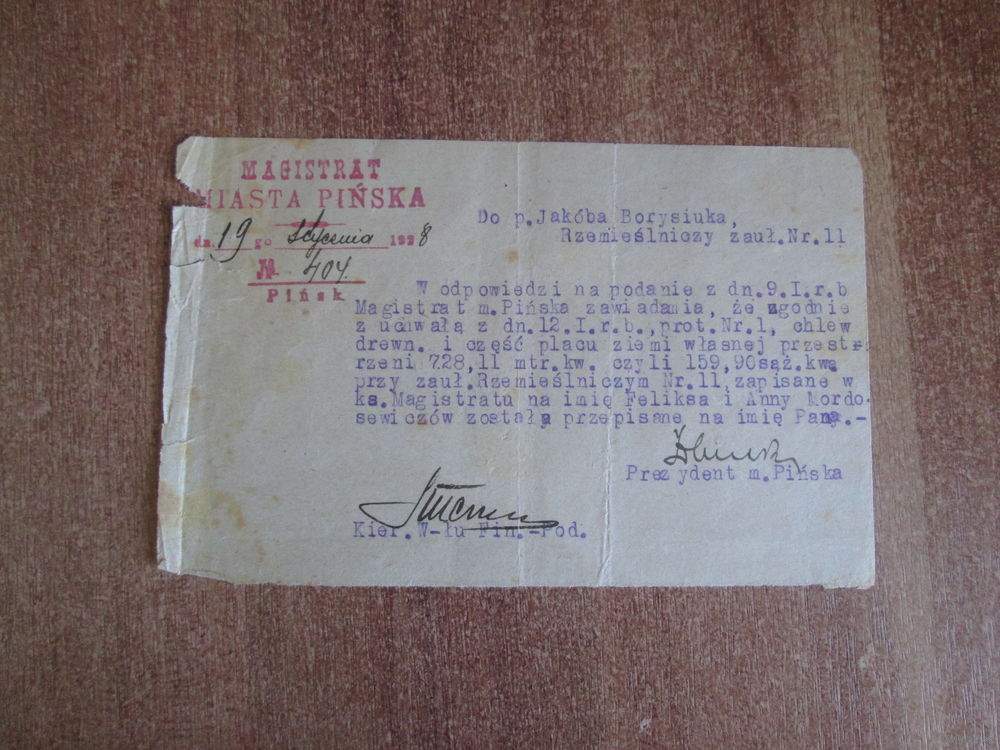 MAGISTRAT
MIASTA PIŃSKA
dn. 19 go stycznia 1928
№ 404.
Pińsk
Do p. Jakóba Borysiuka,
Rzemieślniczy zauł. Nr. 11
W odpowiedzi na podanie z dn. 9. I. r. b
Magistrat m. Pińska zawiadamia, że zgodnie
z uchwałą z dn. 12. I. r. b., prot. Nr. 1, chlew
drewn. i część placu ziemi własnej przest-
rzeni 728,11 mtr. kw. czyli 159,90 sąż. kwa
przy zauł. Rzemieślniczym Nr. 11, zapisane w
ks. Magistratu na imię Feliksa i Anny Mordo-
sewiczów zostały przepisane na imię Pana.-
Prezydent m. Pińska
Kier. W-łu Fin.-Pod.